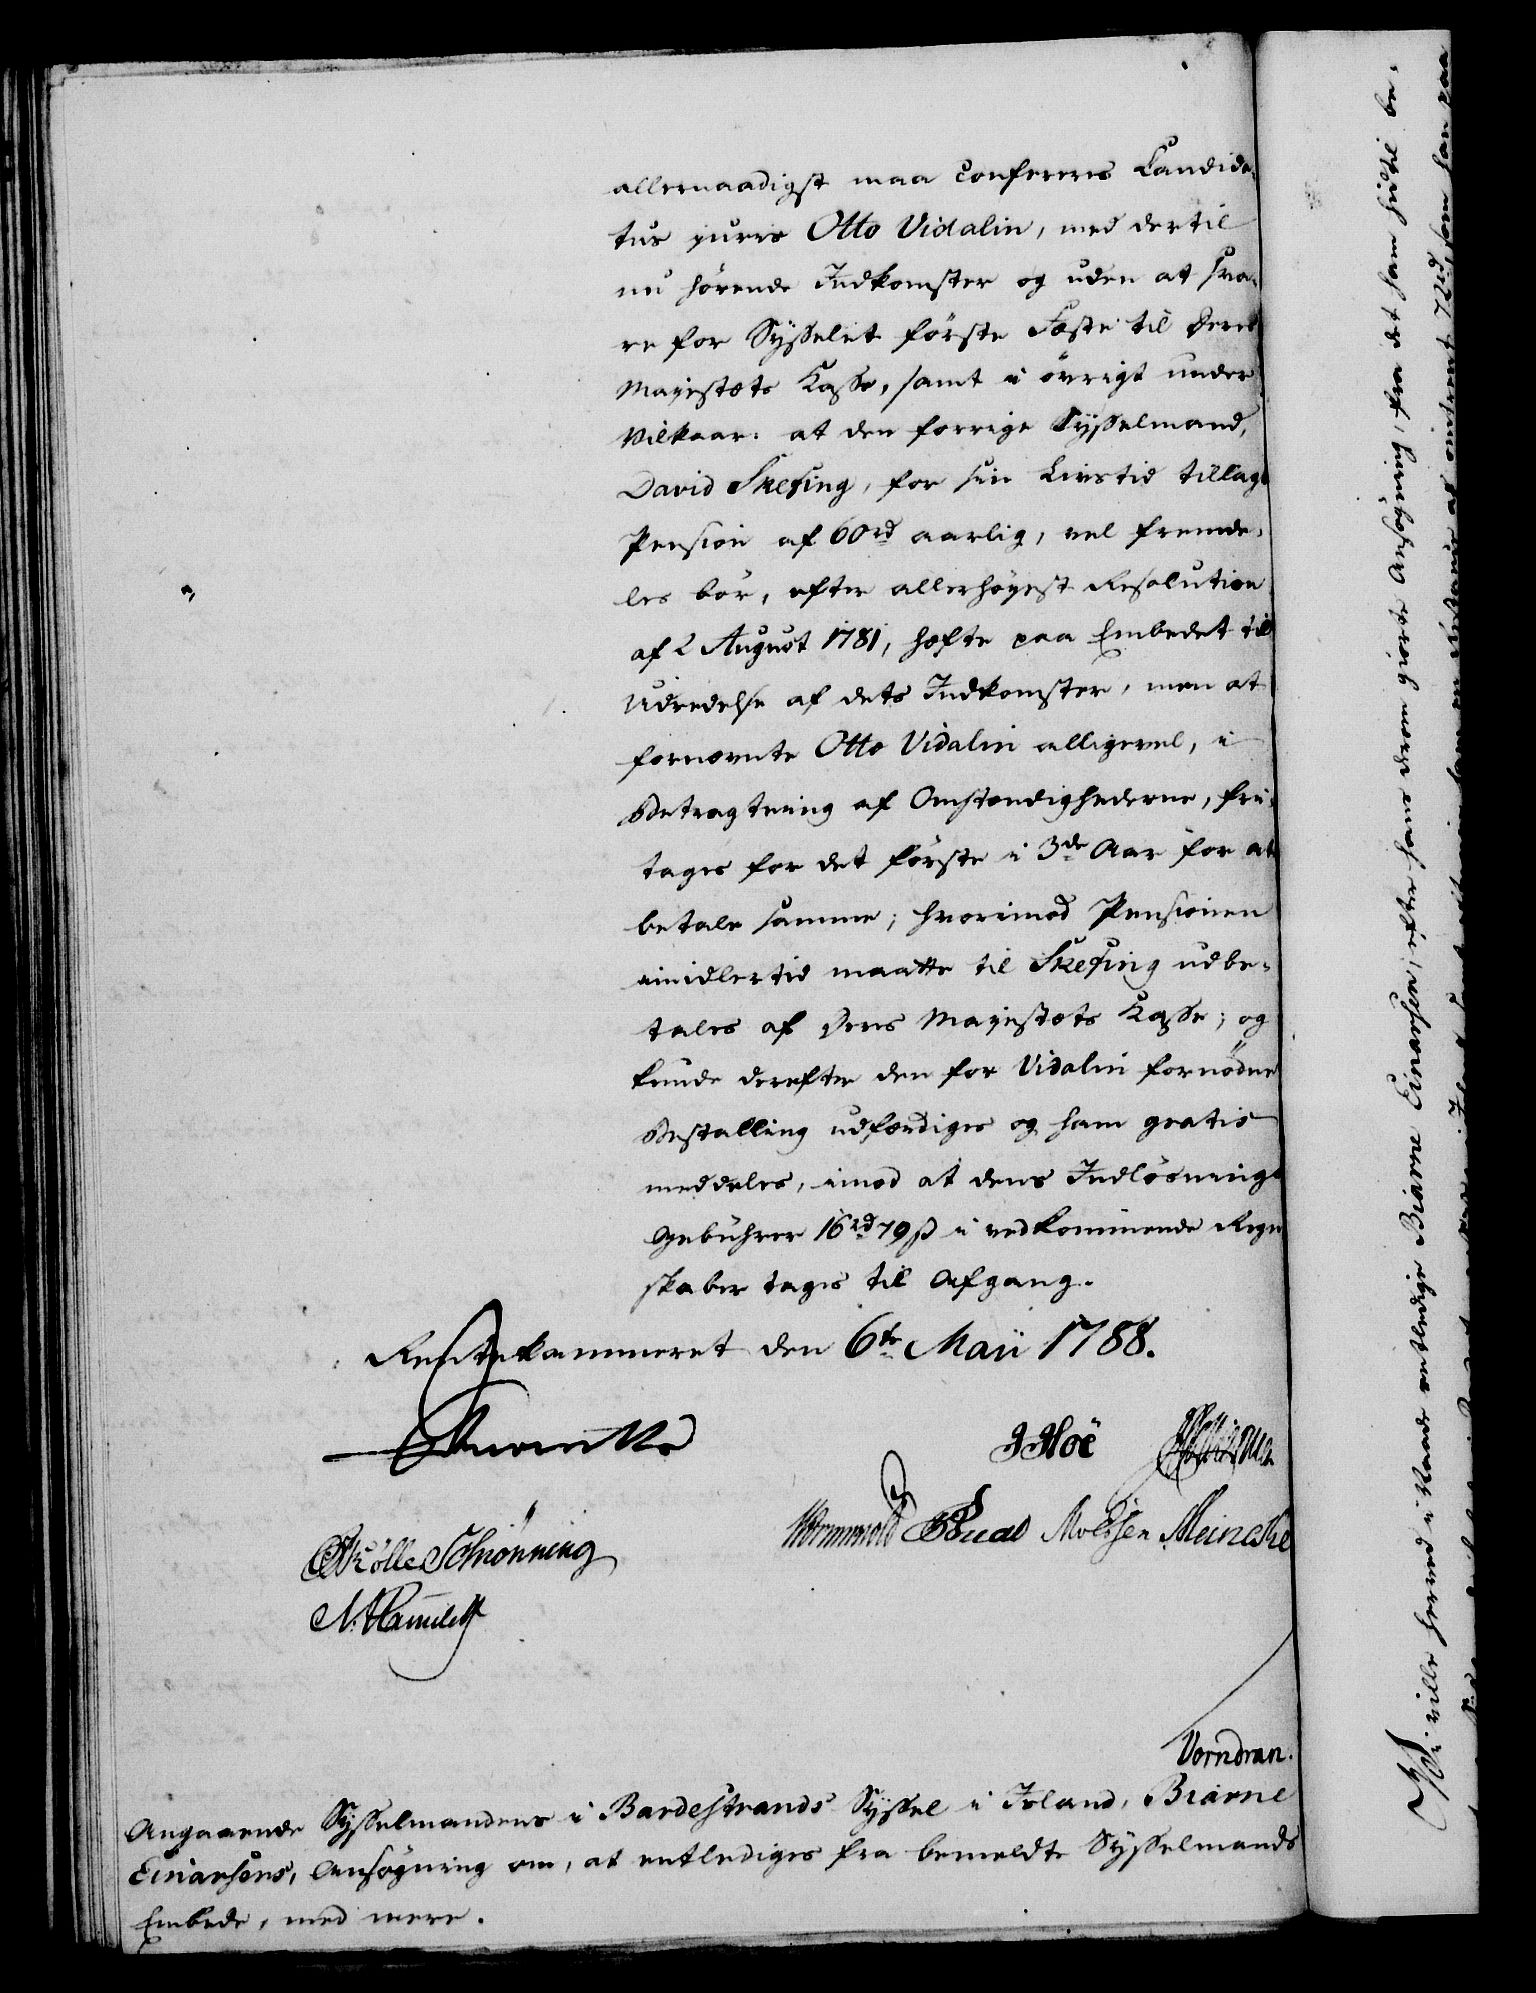 allernaadigst maa confereres Candida-
tus juris Otto Vidalin, med dertil
nu hörende Indkomster og uden at sva-
re for Sysselets förste Fæste til Deres
Majestæts Kasse, samt i övrigt under
Vilkaar: at den forrige Sysselmand,
David Skefing, for sin Livstid tillagt
Pension af 60 rd aarlig, vel fremde-
les bör, efter allerhöyest Resolution
af 2 August 1781, hæfte paa Embedet til
Udredelse af dets Indkomster, men at
fornævnte Otto Vidalin alligevel, i
Betragtning af Omstændighederne, fri-
tages for det förste i 3de Aar for at
betale samme; hvorimod Pensionen
imidlertid maatte til Skefing udbe-
tales af Deres Majestæts Kasse; og
kunde derefter den for Vidalin fornödne
Bestalling udfærdiges og ham gratis
meddeles, imod at dens Indlösnings
Gebührer 16 rd 79 ß i vedkommende Regn
skaber tages til Afgang.
Rentekammeret den 6te Maii 1788.
JHoë
Wormskiold Meincke
Schiönning
Vorndran.
Angaaende Sysselmandens i Bardestrands Syssel i Island, Biarne
Einarsens, Ansögning om, at entlediges fra bemeldte Sysselmands
Embede, med mere.
Vi ville herved i Naade entledige Biarne Einarsen, efter hans derom giorte Ansögning, fra det ham hidtil be-